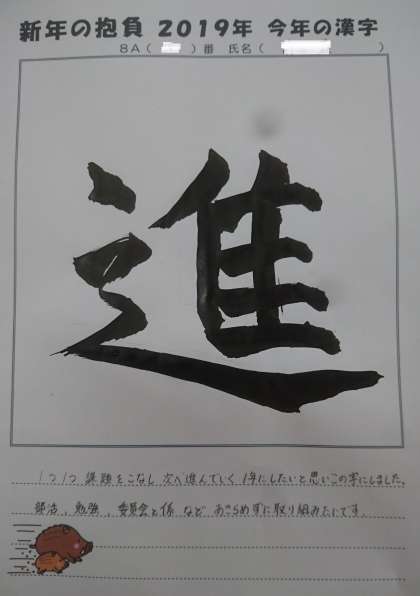 新年の抱負 2019年 今年の漢字
8A( )番 氏名( )
進
1つ1つ 課題をこなし 次へ進んでいく 1年にしたいと思いこの字にしました。
部活、勉強、委員会と係 など あきらめずに取り組みたいです。